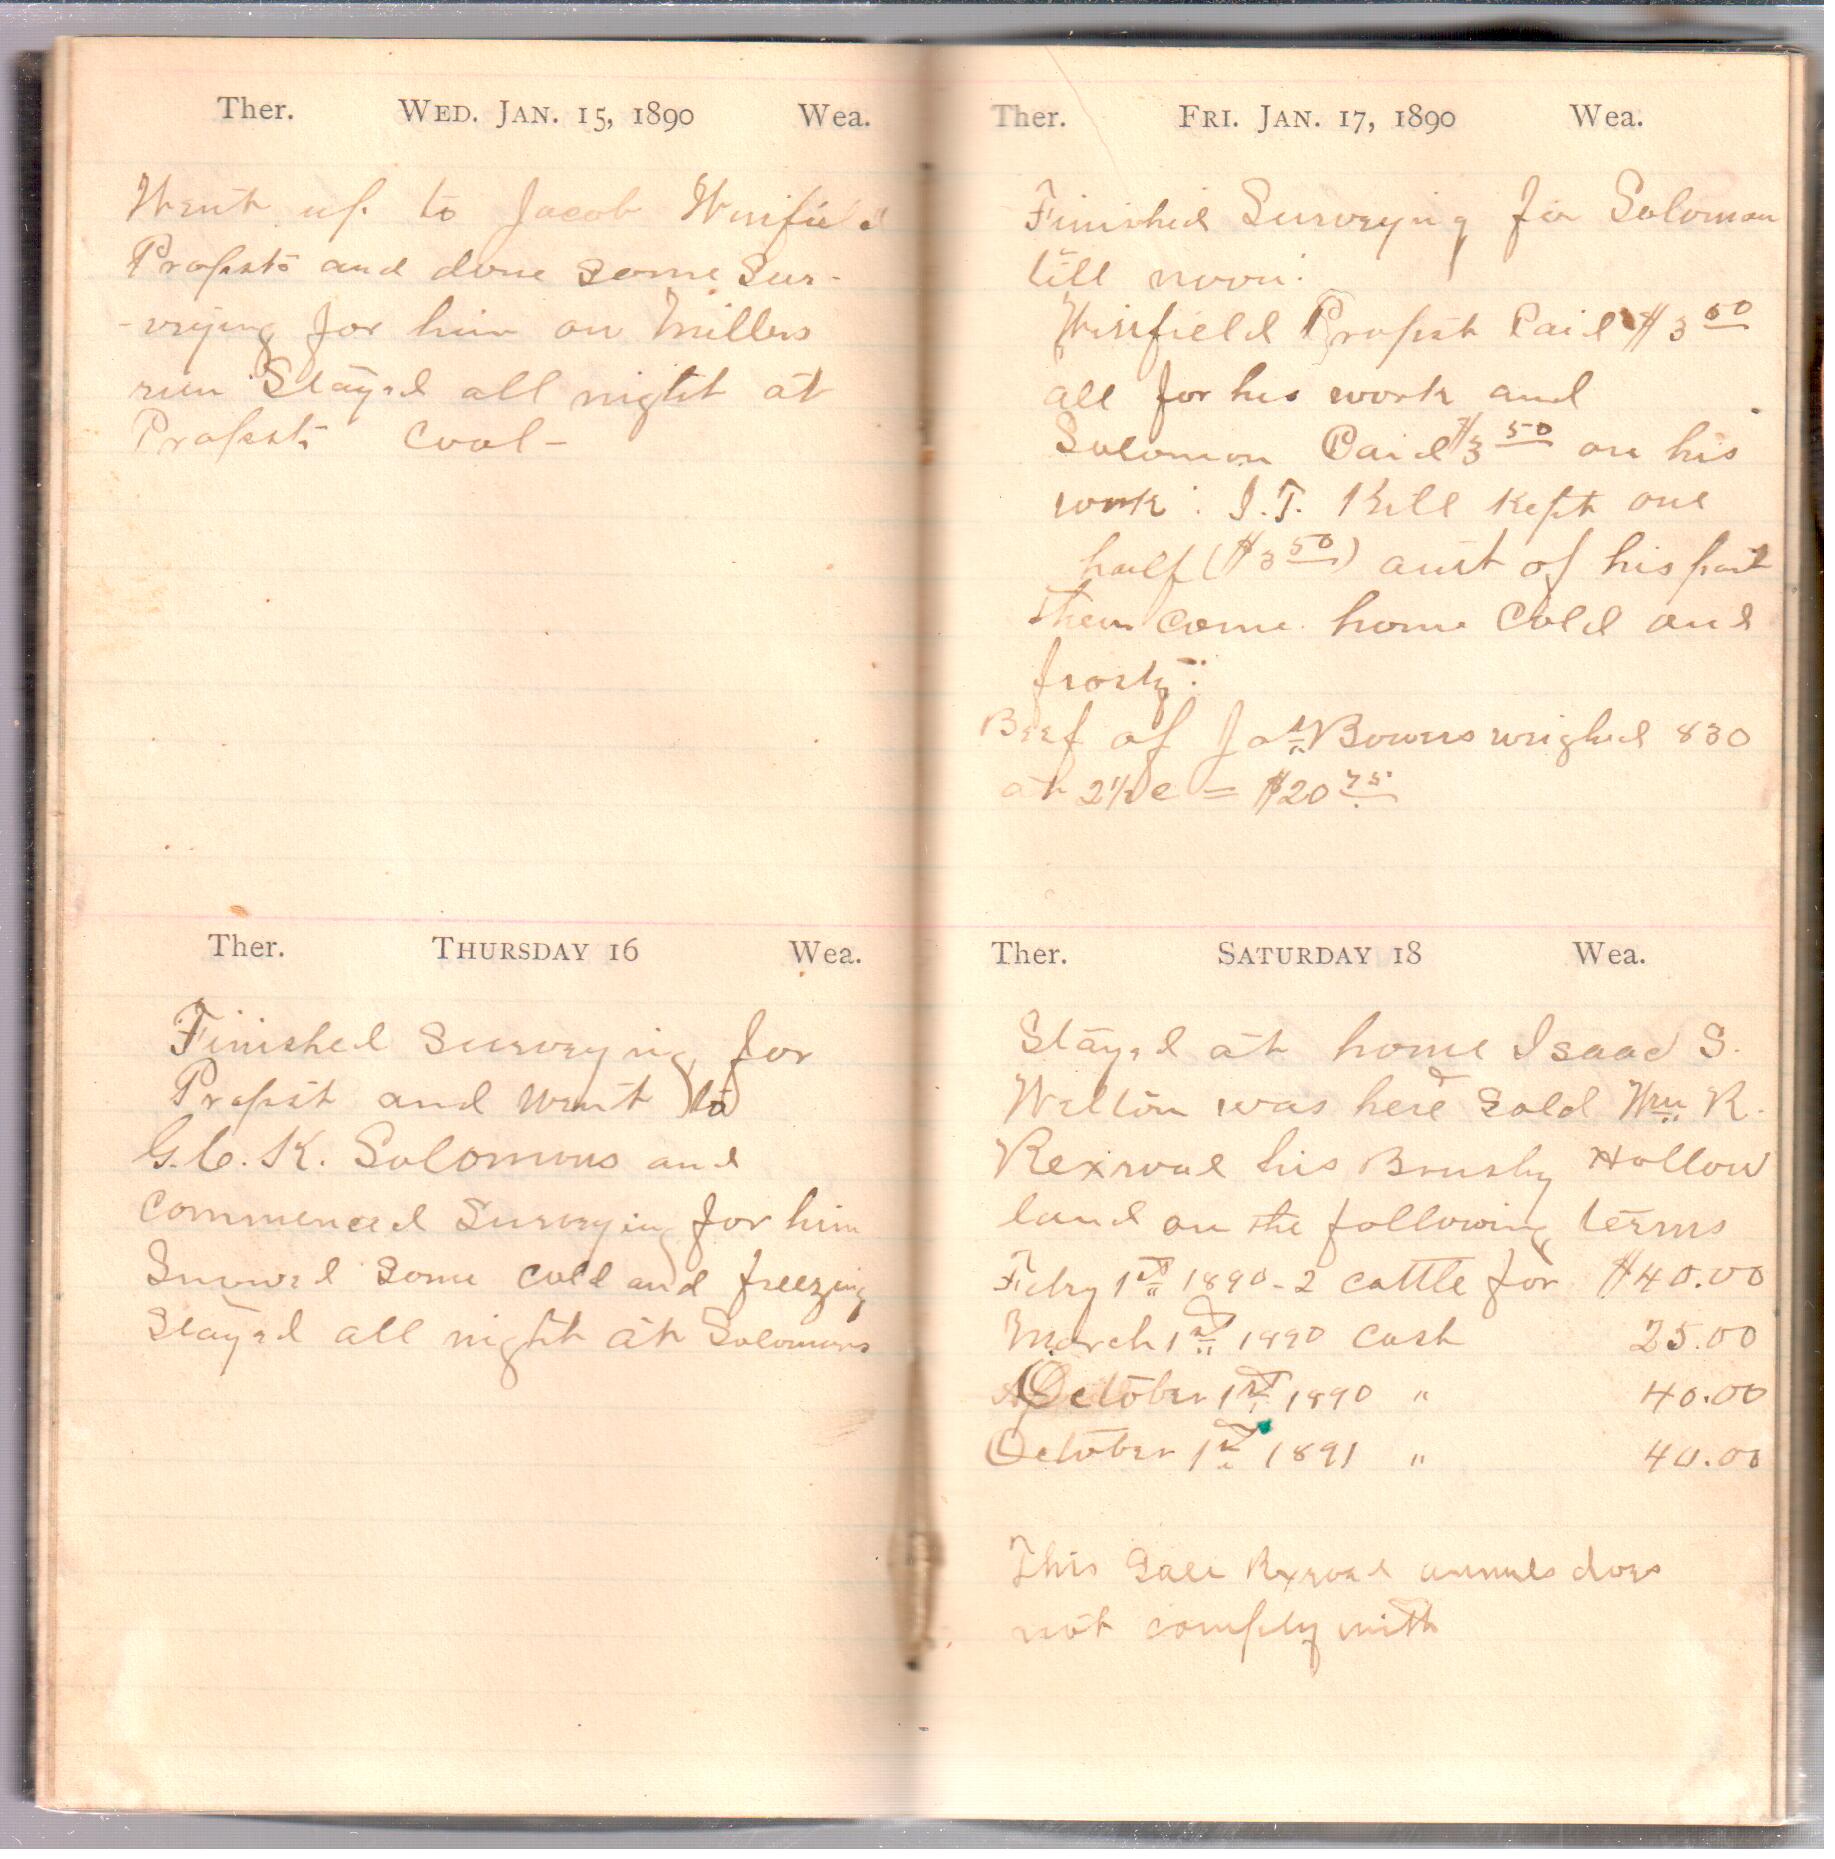 Ther. WED. JAN. 15, 1890 Wea.
Went up to Jacob Winfield
Propsts and done some Sur-
-veying for him on Millers
run Stayed all night at
Propsts Cool-
Ther. THURSDAY 16 Wea.
Finished Surveying for
Propst and went to
G.C.K. Solomons and
commenced Surveying for him
Snowed some cold and freezing
Stayed all night at Solomons
Ther. FRI. JAN. 17, 1890 Wea.
Finished Surveying for Solomon
till noon:
Winfield Propst Paid $3 50
all for his work and
Solomon Paid $3 50 on his
work : I.T. Kile kept one
half ($3 50) of his part
then come home Cold and
frosty:
Beef of Jas Bowers weighed 830
at 2½ c = $20 75
Ther. SATURDAY 18 Wea.
Stayed at home Isaac S.
Welton was here Sold Wm R.
Rexroad his Brushy Hollow
land on the following terms
Feby 1st 1890 - 2 cattle for $40.00
March 1st 1890 cash 25.00
October 1st 1890 " 40.00
October 1st 1891 " 40.00
This Sale Rexroad annuls does
not comply with